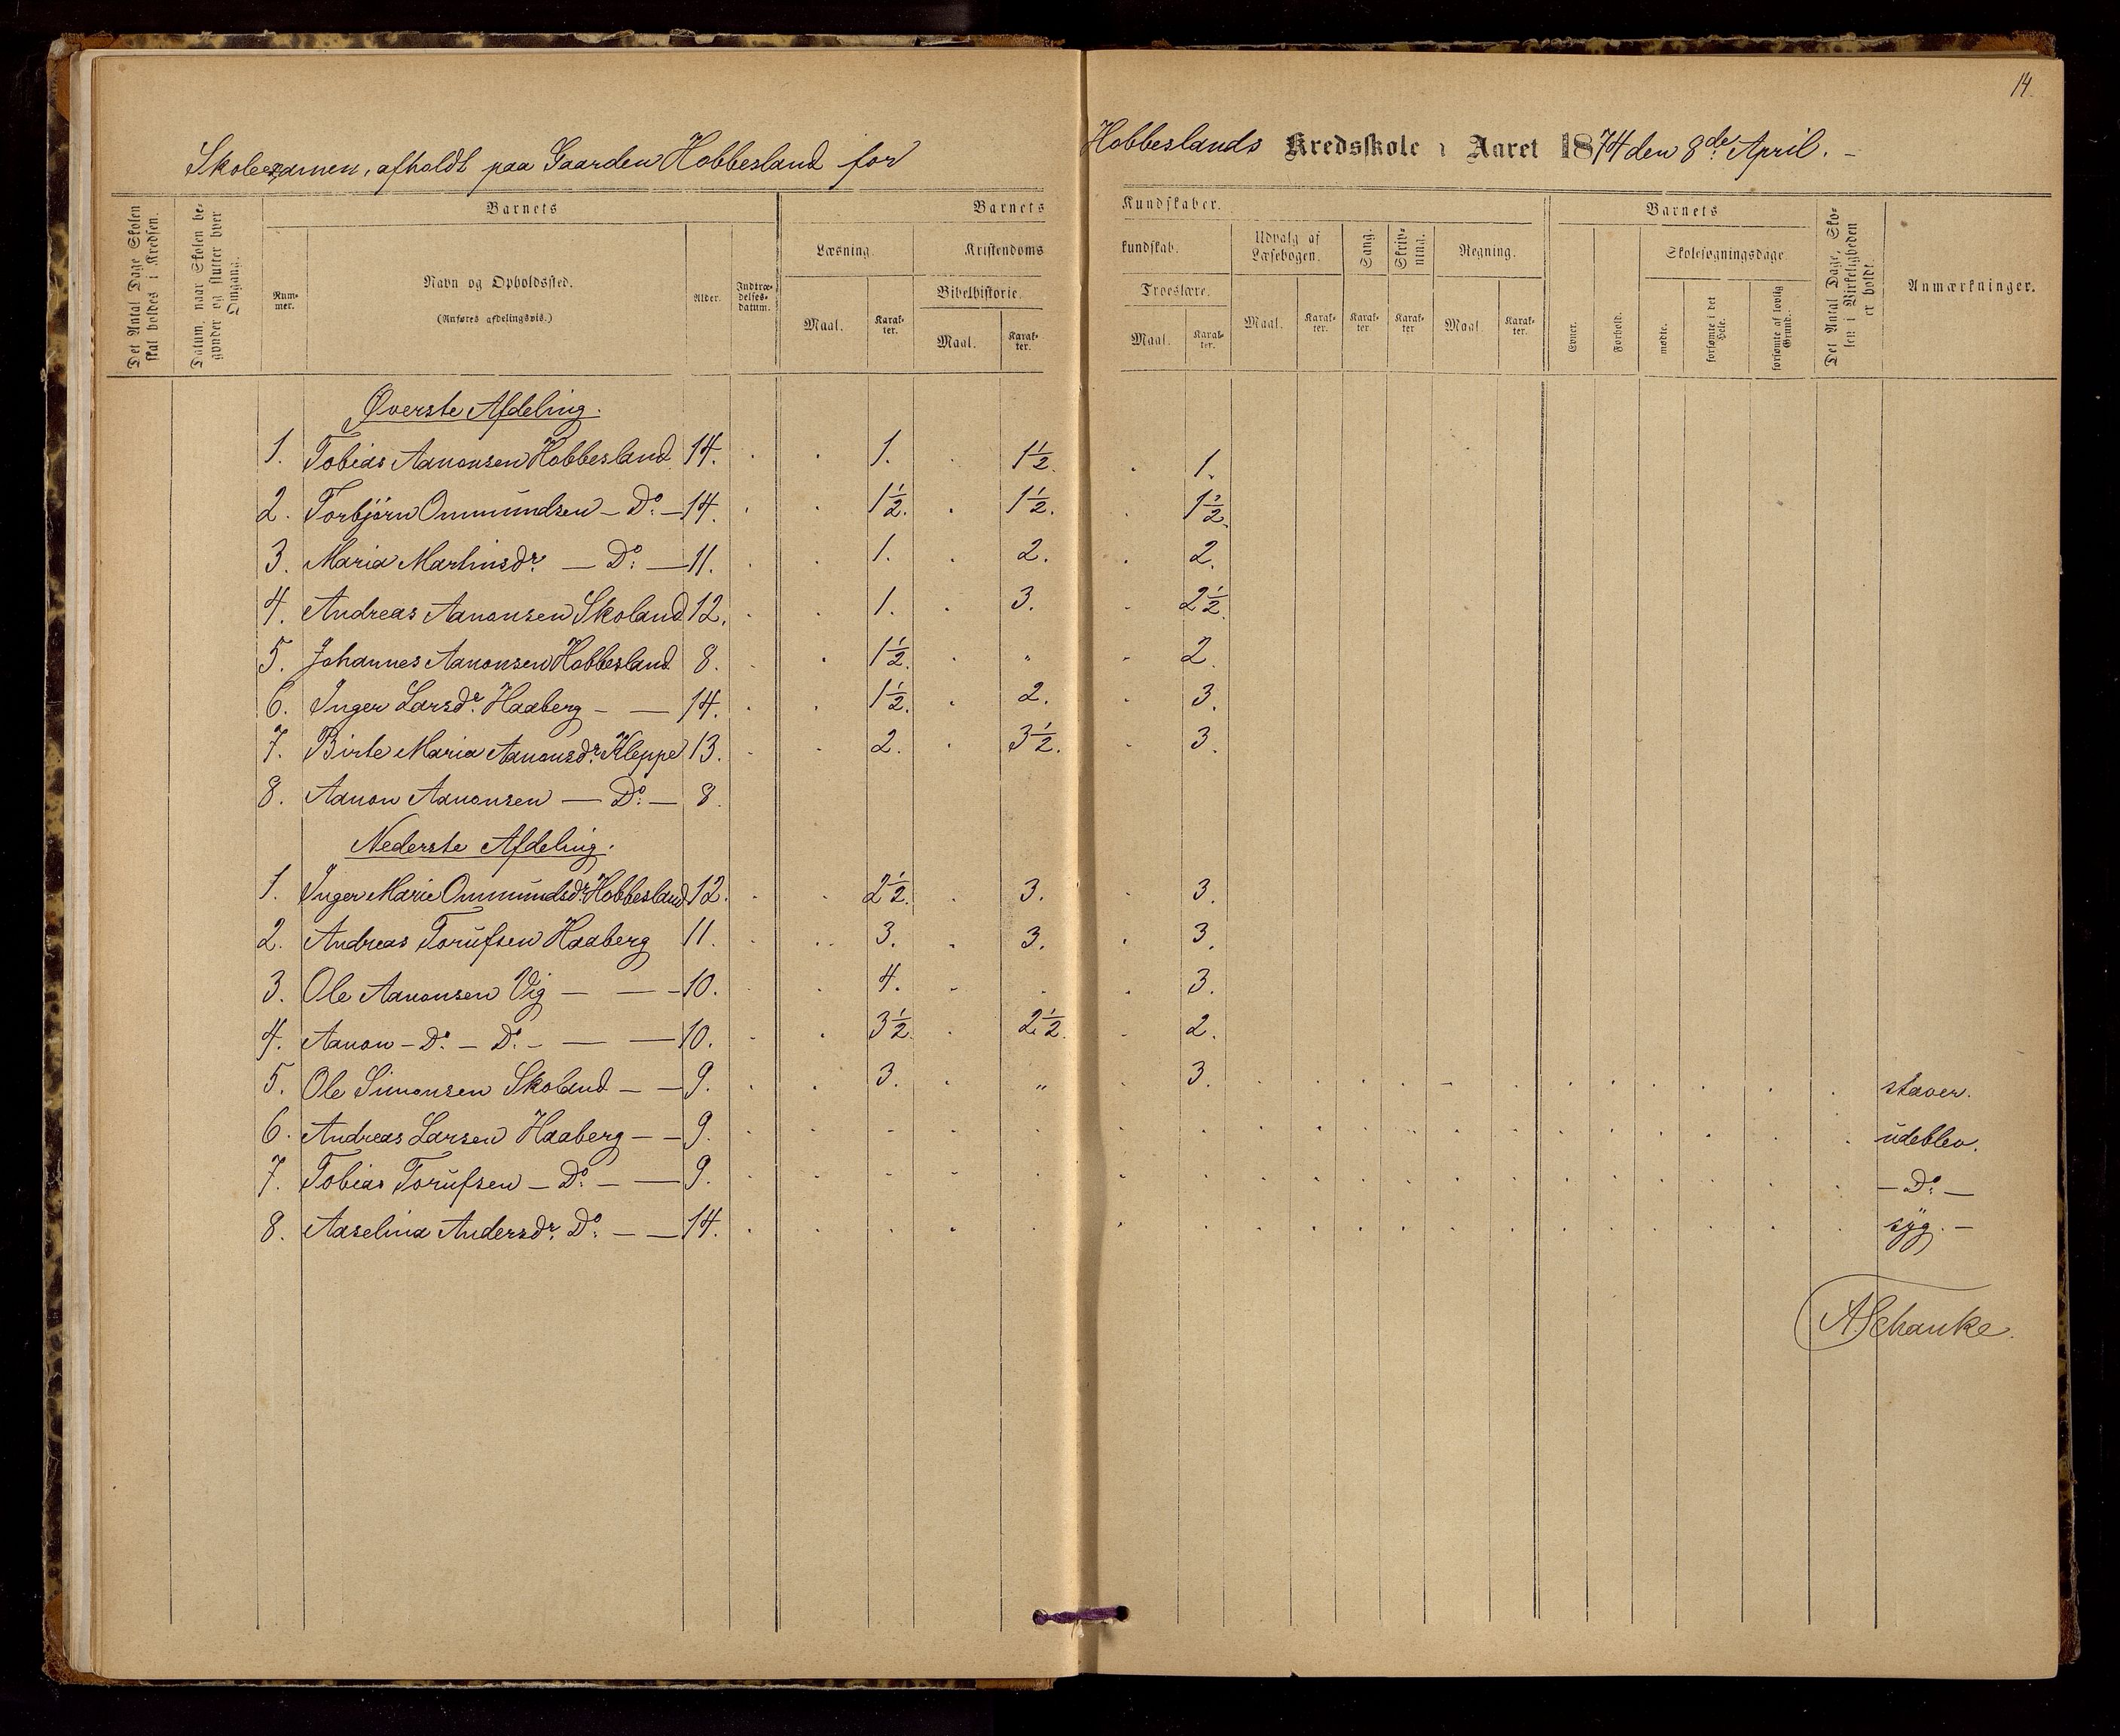 14.
Skoleexamen, afholdt paa Gaarden Hobbesland for Hobbeslands Kredsskole i Aaret 1874 den 8de April. –
Det Antal Dage Skolen skal holdes i Kredsen.
Datum, naar Skolen begynder og slutter hver Omgang.
Barnets
Nummer.
Navn og Opholdssted.
(Anføres afdelingsvis.)
Alder.
Indtrædelsesdatum.
Barnets Kundskaber.
Læsning.
Maal.
Karakter.
Kristendoms kundskab.
Bibelhistorie.
Maal.
Karakter.
Troeslære.
Maal.
Karakter.
Udvalg af Læsebogen.
Maal.
Karakter.
Sang.
Karakter
Skrivning.
Karakter
Regning.
Maal.
Karakter.
Barnets
Evner.
Forhold.
Skolesøgningsdage
mødte.
forsømte i det Hele.
forsømte af lovlig Grund.
Det Antal Dage, Skolen i Virkeligheden er holdt.
Anmærkninger.
Øverste Afdeling.
1. Tobias Aanonsen Hobbesland 14. 1. 1½. 1.
2. Torbjørn Ommundsen – Do. – 14. 1½. 1½. 1½.
3. Maria Martinsdr. – Do. – 11. 1. 2. 2.
4. Andreas Aanonsen Skoland 12. 1. 3. 2½.
5. Johannes Aanonsen Hobbesland 8. 1½. " 2.
6. Inger Larsdr. Haaberg – – 14. 1½. 2. 3.
7. Birte Maria Aanonsdr. Kleppe 13. 2. 3½. 3.
8. Aanon Aanonsen – Do. – 8.
Nederste Afdeling.
1. Inger Marie Ommundsdr. Hobbesland 12. 2½. 3. 3.
2. Andreas Torufsen Haaberg 11. 3. 3. 3.
3. Ole Aanonsen Vig – – – 10. 4. 3.
4. Aanon – Do. – Do. – – – 10. 3½. 2½. 2.
5. Ole Simonsen Skoland – – 9. 3. " 3. staver.
6. Andreas Larsen Haaberg – – 9. udeblev.
7. Tobias Torufsen – Do. – – 9. – Do. –
8. Aaselina Andersdr. Do. – – 14. syg. –
A. Schanke.